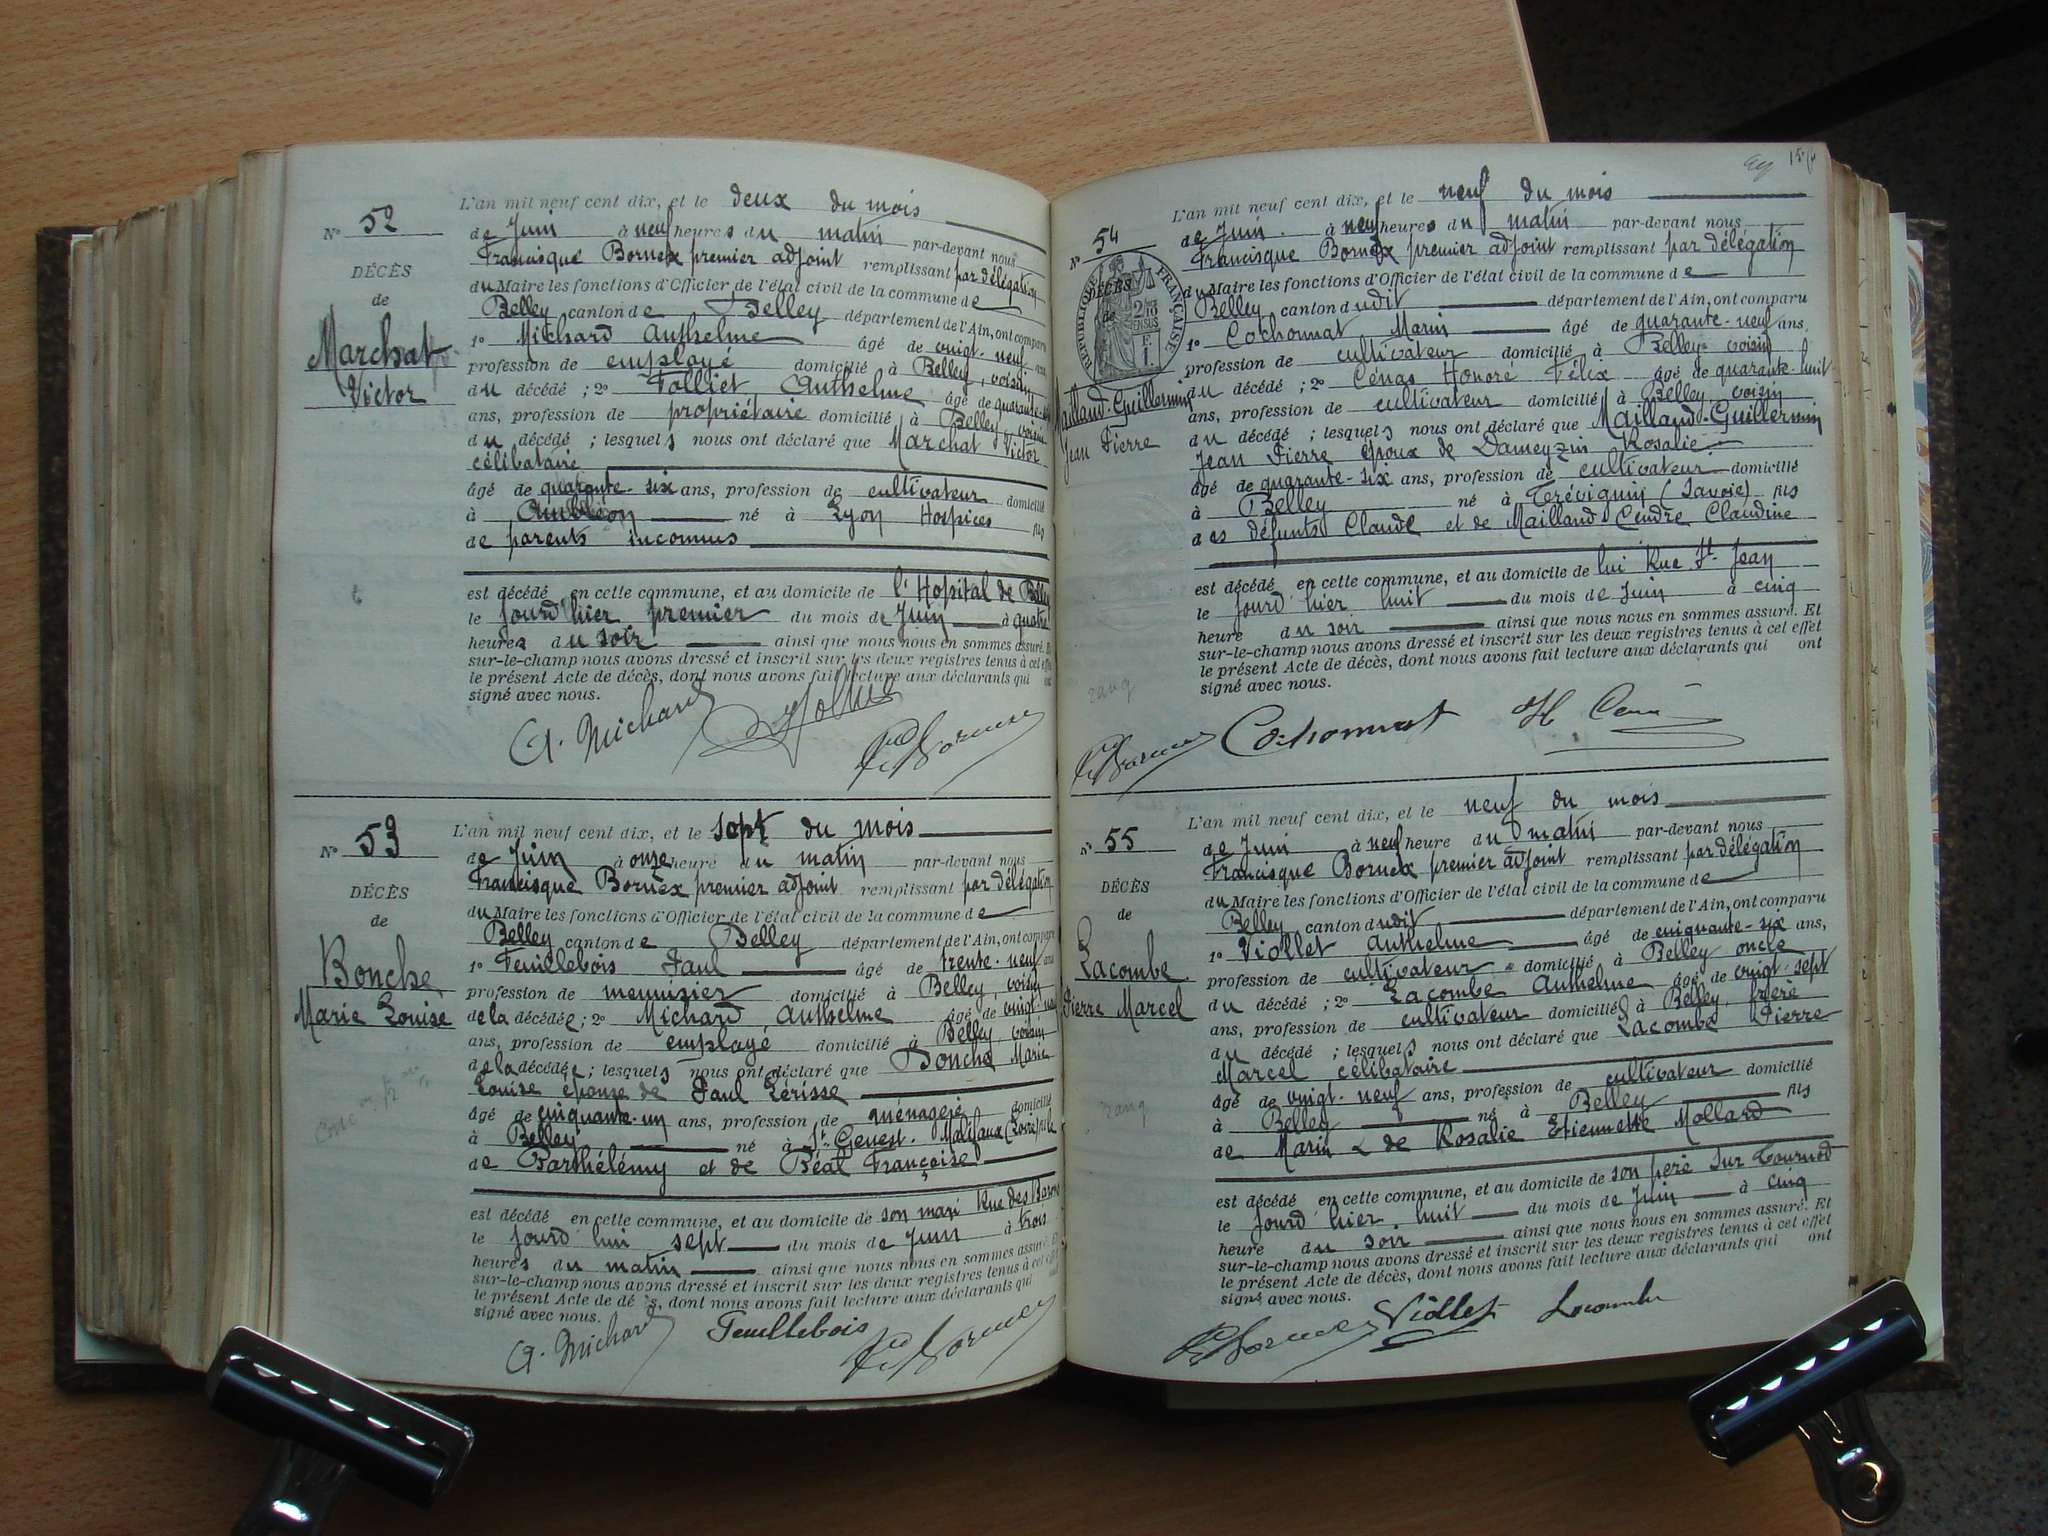 N° 52
DÉCÈS
de
Marchat
Victor
L'an mil neuf cent dix, et le deux du mois
de Juin à neuf heures du matin par-devant nous
Francisque Bornex premier adjoint remplissant par délégation
du Maire les fonctions d'Officier de l'état civil de la commune de
Belley canton de Belley département de l'Ain, ont comparu
1° Michard Anthelme âgé de vingt-neuf ans
profession de employé domicilié à Belley, voisin
du décédé ; 2° Folliet Anthelme âgé de quarante
ans, profession de propriétaire domicilié à Belley, voisin
du décédé ; lesquels nous ont déclaré que Marchat Victor
célibataire
âgé de quarante-six ans, profession de cultivateur domicilié
à Ambléon né à Lyon Hospices fils
de parents inconnus
est décédé en cette commune, et au domicile de l'Hopital de Belley
le jourd'hier premier du mois de Juin à quatre
heures du soir ainsi que nous nous en sommes assuré. Et
sur-le-champ nous avons dressé et inscrit sur les deux registres tenus à cet effet
le présent Acte de décès, dont nous avons fait lecture aux déclarants qui ont
signé avec nous.
A. Michard
N° 53
DÉCÈS
de
Bonche
Marie Louise
L'an mil neuf cent dix, et le sept du mois
de Juin à onze heure du matin par-devant nous
Francisque Bornex premier adjoint remplissant par délégation
du Maire les fonctions d'Officier de l'état civil de la commune de
Belley canton de Belley département de l'Ain, ont comparu
1° Feuillebois Paul âgé de trente-neuf ans
profession de menuisier domicilié à Belley, voisin
de la décédée ; 2° Michard Anthelme âgé de vingt-neuf
ans, profession de employé domicilié à Belley, voisin
de la décédée ; lesquels nous ont déclaré que Bonche Marie
Louise épouse de Paul Lérisse
âgé de cinquante-un ans, profession de ménagère domicilié
à Belley né à St Genest-Malifaux (Loire) fille
de Barthélémy et de Béal Françoise
est décédé en cette commune, et au domicile de son mari Rue des Barons
le jourd'hui sept du mois de Juin à trois
heures du matin ainsi que nous nous en sommes assuré. Et
sur-le-champ nous avons dressé et inscrit sur les deux registres tenus à cet effet
le présent Acte de décès, dont nous avons fait lecture aux déclarants qui ont
signé avec nous.
A. Michard Feuillebois
N° 54
DÉCÈS
de
RÉPUBLIQUE FRANÇAISE
Mailland-Guillermin
Jean Pierre
L'an mil neuf cent dix, et le neuf du mois
de Juin à neuf heures du matin par-devant nous
Francisque Bornex premier adjoint remplissant par délégation
du Maire les fonctions d'Officier de l'état civil de la commune de
Belley canton dudit département de l'Ain, ont comparu
1° Cochonnat Marin âgé de quarante-neuf ans,
profession de cultivateur domicilié à Belley voisin
du décédé ; 2° Cénas Honoré Félix âgé de quarante-huit
ans, profession de cultivateur domicilié à Belley, voisin
du décédé ; lesquels nous ont déclaré que Mailland-Guillermin
Jean Pierre époux de Dameyzin Rosalie
âgé de quarante-six ans, profession de cultivateur domicilié
à Belley né à Trévignin (Savoie) fils
des défunts Claude et de Mailland Cendre Claudine
est décédé en cette commune, et au domicile de lui Rue St-Jean
le jourd'hier huit du mois de Juin à cinq
heure du soir ainsi que nous nous en sommes assuré. Et
sur-le-champ nous avons dressé et inscrit sur les deux registres tenus à cet effet
le présent Acte de décès, dont nous avons fait lecture aux déclarants qui ont
signé avec nous.
Cochonnat
N° 55
DÉCÈS
de
Lacombe
Pierre Marcel
L'an mil neuf cent dix, et le neuf du mois
de Juin à neuf heure du matin par-devant nous
Francisque Bornex premier adjoint remplissant par délégation
du Maire les fonctions d'Officier de l'état civil de la commune de
Belley canton dudit département de l'Ain, ont comparu
1° Viollet Anthelme âgé de cinquante-six ans,
profession de cultivateur domicilié à Belley oncle
du décédé ; 2° Lacombe Anthelme âgé de vingt-sept
ans, profession de cultivateur domicilié à Belley, frère
du décédé ; lesquels nous ont déclaré que Lacombe Pierre
Marcel célibataire
âgé de vingt-neuf ans, profession de cultivateur domicilié
à Belley né à Belley fils
de Marin & de Rosalie Etiennette Mollard
est décédé en cette commune, et au domicile de son père sur Cournod
le jourd'hier huit du mois de Juin à cinq
heure du soir ainsi que nous nous en sommes assuré. Et
sur-le-champ nous avons dressé et inscrit sur les deux registres tenus à cet effet
le présent Acte de décès, dont nous avons fait lecture aux déclarants qui ont
signé avec nous.
Viollet Lacombe